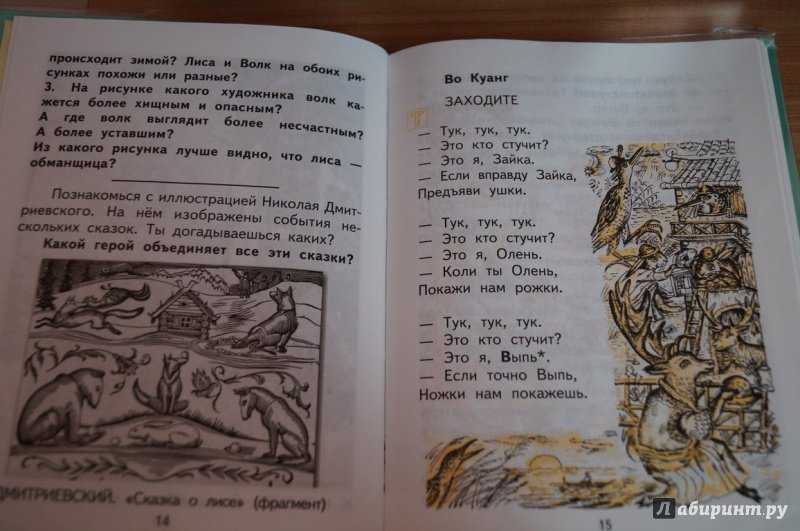 происходит зимой? Лиса и Волк на обоих ри-
сунках похожи или разные?
3. На рисунке какого художника волк ка-
жется более хищным и опасным?
А где волк выглядит более несчастным?
А более уставшим?
Из какого рисунка лучше видно, что лиса —
обманщица?
Познакомься с иллюстрацией Николая Дмит-
риевского. На нём изображены события не-
скольких сказок. Ты догадываешься каких?
Какой герой объединяет все эти сказки?
ДМИТРИЕВСКИЙ. «Сказка о лисе» (фрагмент)
14
Во Куанг
ЗАХОДИТЕ
— Тук, тук, тук.
— Это кто стучит?
— Это я, Зайка.
— Если вправду Зайка,
Предъяви ушки.
— Тук, тук, тук.
— Это кто стучит?
— Это я, Олень.
— Коли ты Олень,
Покажи нам рожки.
— Тук, тук, тук.
— Это кто стучит?
— Это я, Выпь*.
— Если точно Выпь,
Ножки нам покажешь.
15
Лабиринт.ру